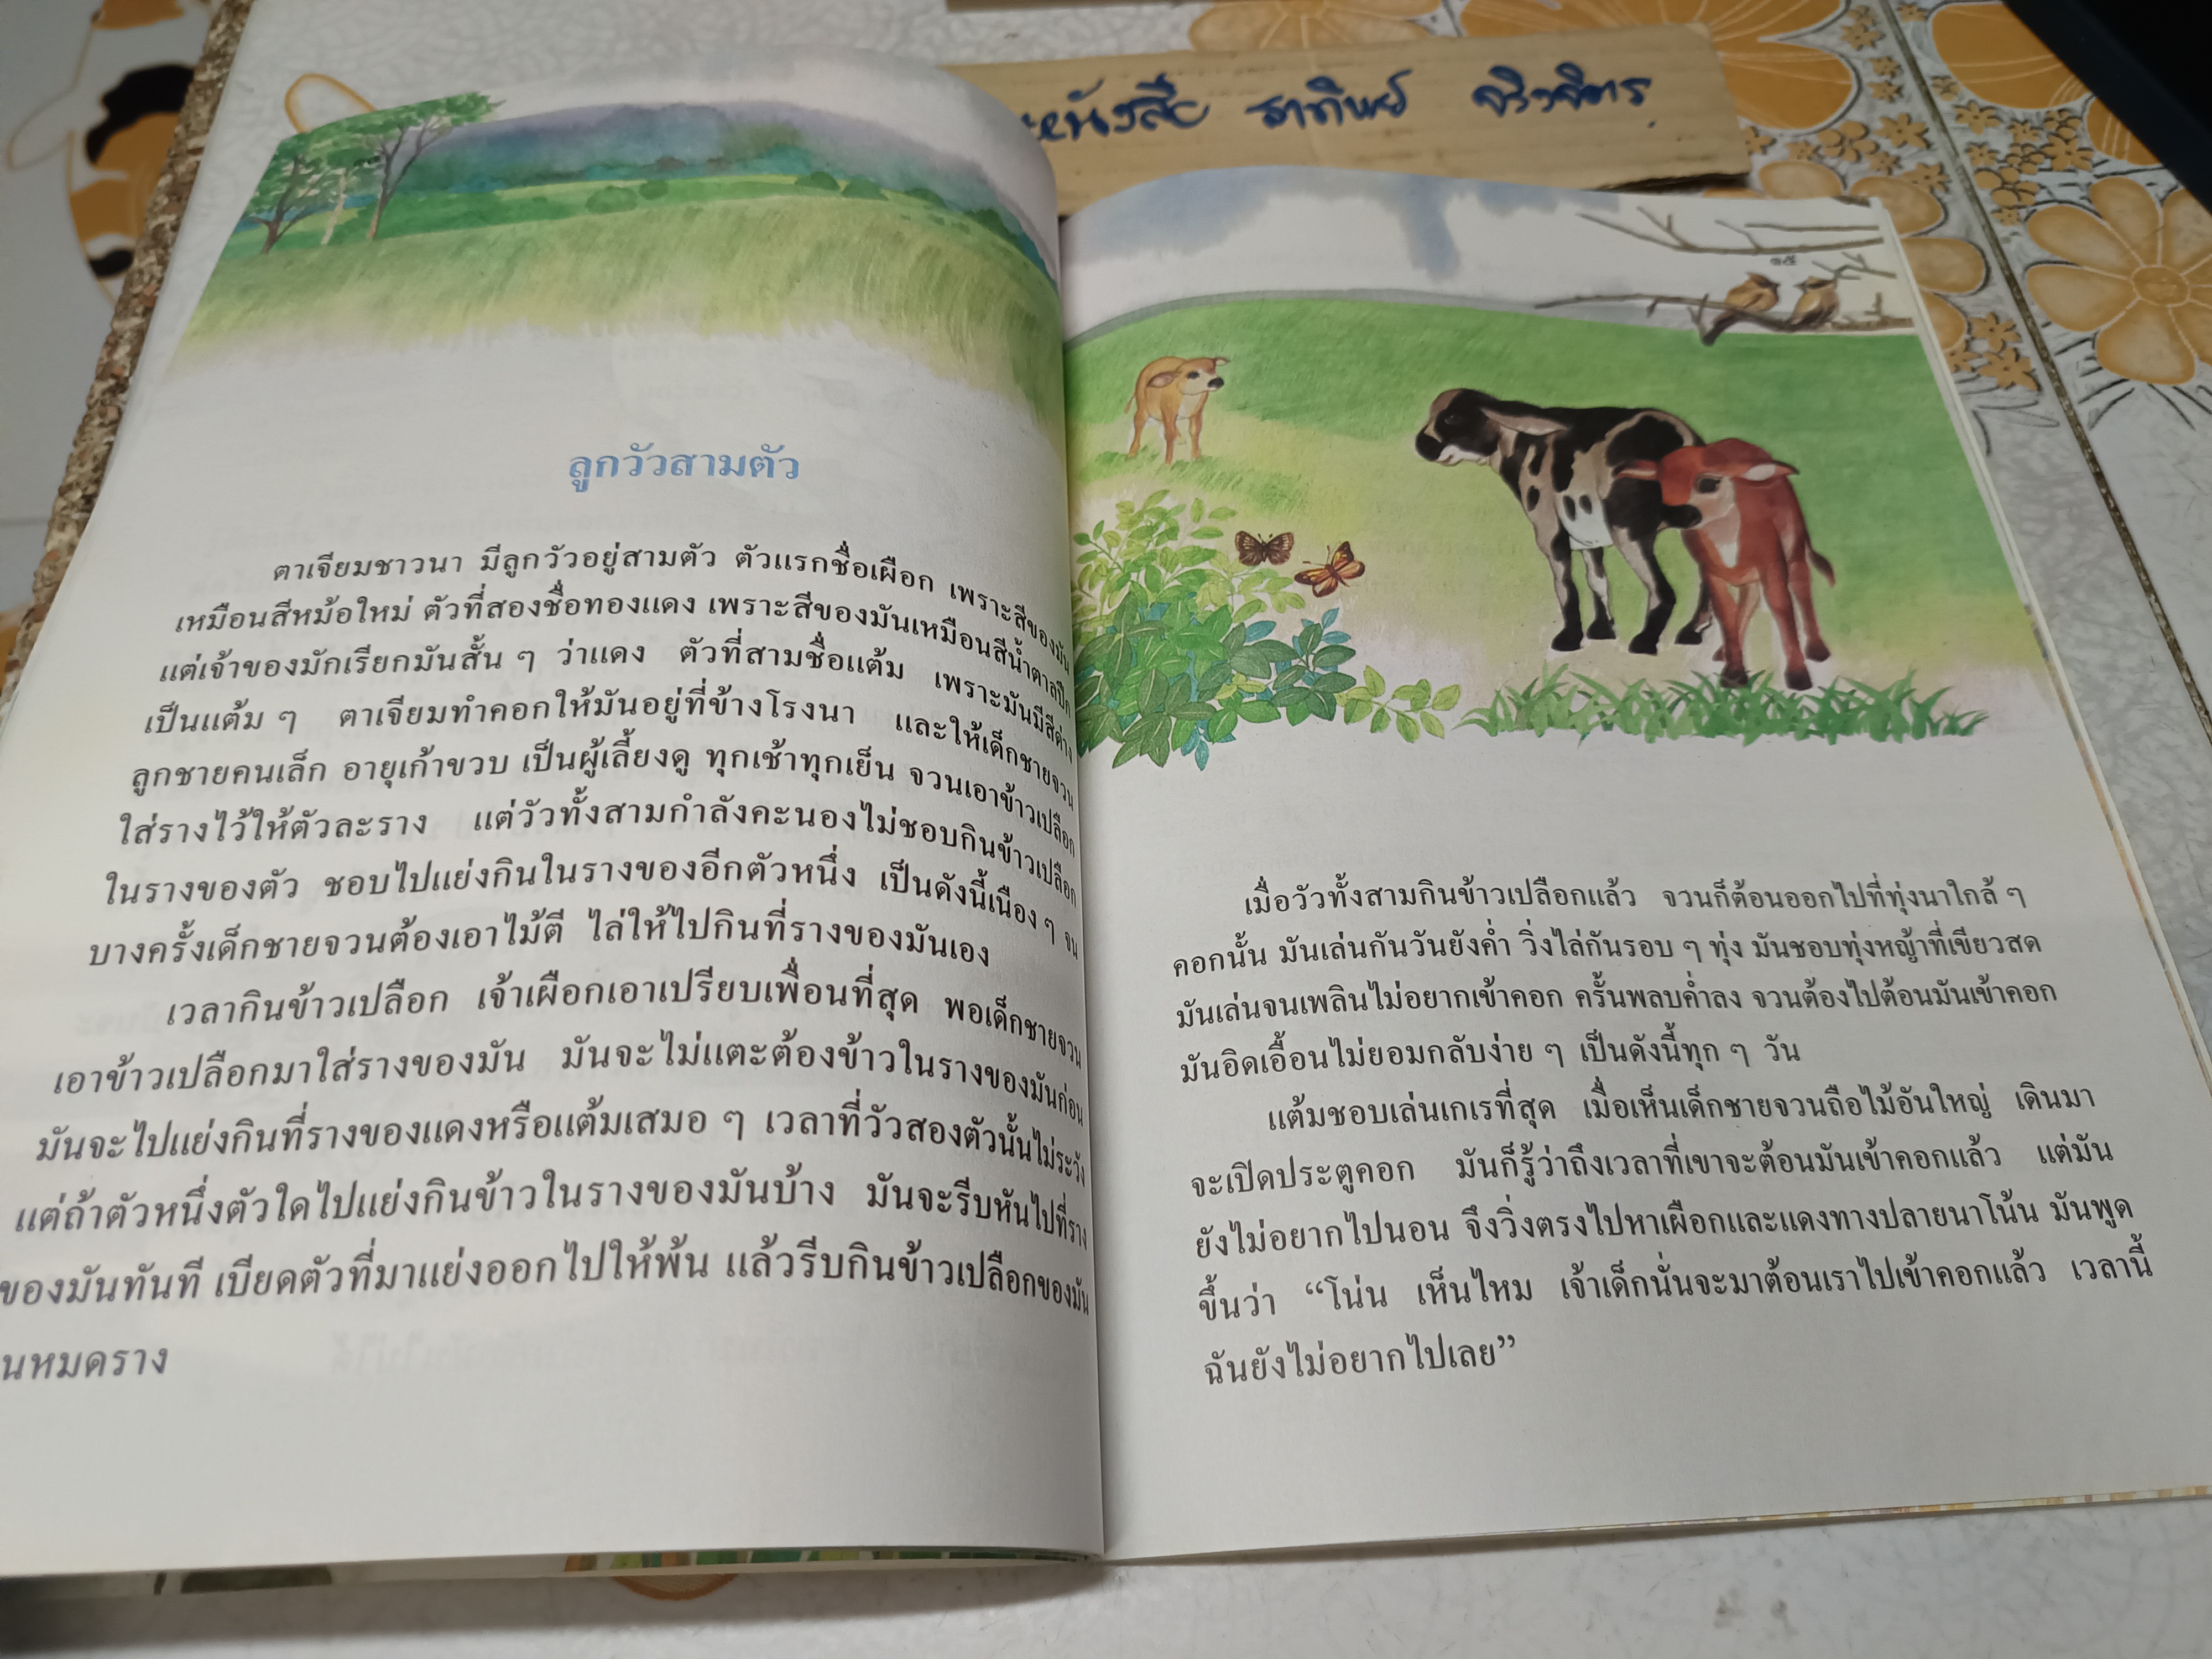 หนังสือ ธาทิพย์
ลูกวัวสามตัว
ตาเจียมชาวนา มีลูกวัวอยู่สามตัว ตัวแรกชื่อเผือก เพราะสีของมัน
เหมือนสีหม้อใหม่ ตัวที่สองชื่อทองแดง เพราะสีของมันเหมือนสีน้ำตาลปึก
แต่เจ้าของมักเรียกมันสั้น ๆ ว่าแดง ตัวที่สามชื่อแต้ม เพราะมันมีสีด่าง
เป็นแต้ม ๆ ตาเจียมทำคอกให้มันอยู่ที่ข้างโรงนา และให้เด็กชายจวน
ลูกชายคนเล็ก อายุเก้าขวบ เป็นผู้เลี้ยงดู ทุกเช้าทุกเย็น จวนเอาข้าวเปลือก
ใส่รางไว้ให้ตัวละราง แต่วัวทั้งสามกำลังคะนองไม่ชอบกินข้าวเปลือก
ในรางของตัว ชอบไปแย่งกินในรางของอีกตัวหนึ่ง เป็นดังนี้เนือง ๆ จน
บางครั้งเด็กชายจวนต้องเอาไม้ตี ไล่ให้ไปกินที่รางของมันเอง
เวลากินข้าวเปลือก เจ้าเผือกเอาเปรียบเพื่อนที่สุด พอเด็กชายจวน
เอาข้าวเปลือกมาใส่รางของมัน มันจะไม่แตะต้องข้าวในรางของมันก่อน
มันจะไปแย่งกินที่รางของแดงหรือแต้มเสมอ ๆ เวลาที่วัวสองตัวนั้นไม่ระวัง
แต่ถ้าตัวหนึ่งตัวใดไปแย่งกินข้าวในรางของมันบ้าง มันจะรีบหันไปที่ราง
ของมันทันที เบียดตัวที่มาแย่งออกไปให้พ้น แล้วรีบกินข้าวเปลือกของมัน
นหมดราง
เมื่อวัวทั้งสามกินข้าวเปลือกแล้ว จวนก็ต้อนออกไปที่ทุ่งนาใกล้ ๆ
คอกนั้น มันเล่นกันวันยังค่ำ วิ่งไล่กันรอบ ๆ ทุ่ง มันชอบทุ่งหญ้าที่เขียวสด
มันเล่นจนเพลินไม่อยากเข้าคอก ครั้นพลบค่ำลง จวนต้องไปต้อนมันเข้าคอก
มันอิดเอื้อนไม่ยอมกลับง่าย ๆ เป็นดังนี้ทุก ๆ วัน
แต้มชอบเล่นเกเรที่สุด เมื่อเห็นเด็กชายจวนถือไม้อันใหญ่ เดินมา
จะเปิดประตูคอก มันก็รู้ว่าถึงเวลาที่เขาจะต้อนมันเข้าคอกแล้ว แต่มัน
ยังไม่อยากไปนอน จึงวิ่งตรงไปหาเผือกและแดงทางปลายนาโน้น มันพูด
ขึ้นว่า “โน่น เห็นไหม เจ้าเด็กนั่นจะมาต้อนเราไปเข้าคอกแล้ว เวลานี้
ฉันยังไม่อยากไปเลย”